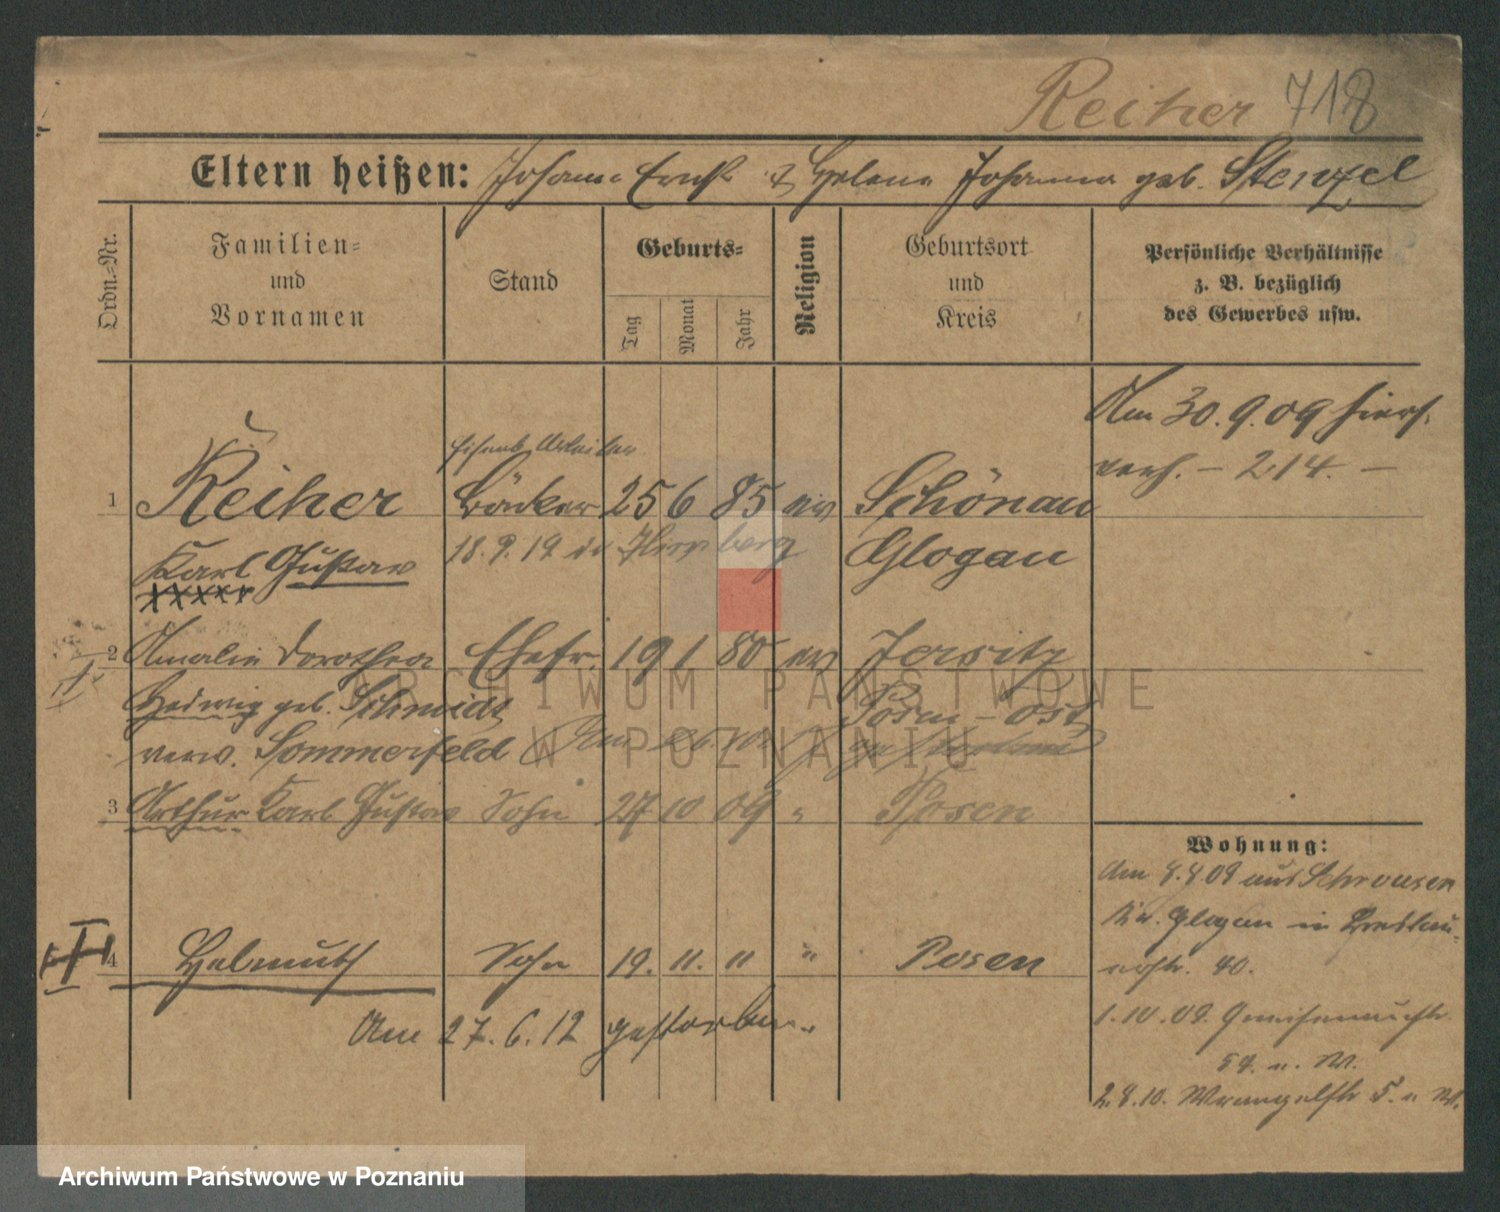 Reiher 718
Eltern heißen: Johann Ernst & Helene Johanna geb. Stenzel
Ordn.=Nr.
Familien=
und
Vornamen
Stand
Geburts=
Tag
Monat
Jahr
Religion
Geburtsort
und
Kreis
Persönliche Verhältnisse
z. B. bezüglich
des Gewerbes usw.
Am 30.9.09 hiers.
verh. – 214. –
Eisenb. Arbeiter
1 Reiher Bäcker 25 6 85 ev Schönau
Karl Gustav 18.9.19 in Hirschberg Glogau
2 Amalie Dorothea Ehefr. 19 1 80 ev Jersitz
Hedwig geb. Schmidt Posen – Ost
verw. Sommerfeld Am gestorben
3 Arthur Karl Gustav Sohn 27 10 09 " Posen
4 Helmuth Sohn 19. 11. 11 " Posen
Am 27.6.12 gestorben.
Wohnung:
Am 8.4.09 aus
Kr. Glogau in Breslauer-
str. 40.
1.10.09. Gneisenaustr.
54. u. W.
2.8.10. Wrangelstr 5. u W.
ARCHIWUM PAŃSTWOWE
W POZNANIU
Archiwum Państwowe w Poznaniu